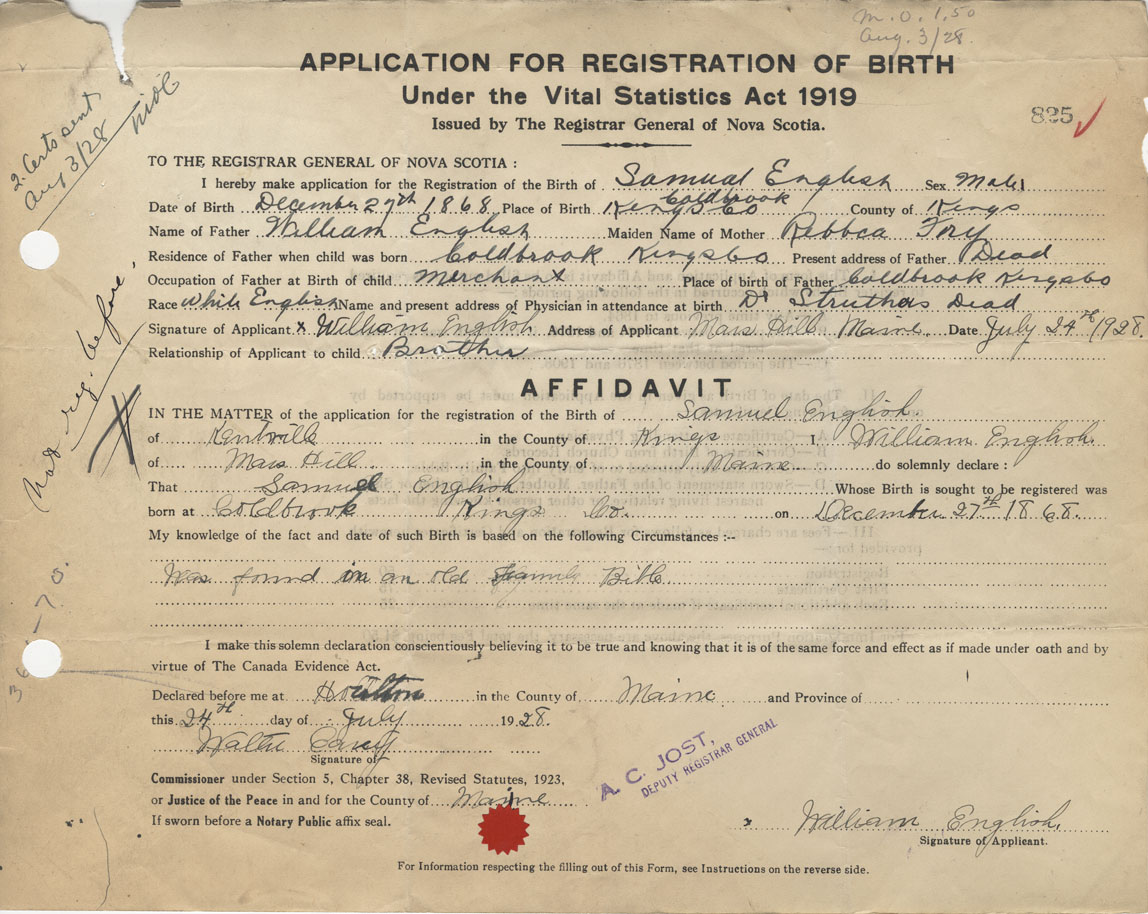 M.O. 1.50
Aug. 3/28.
APPLICATION FOR REGISTRATION OF BIRTH
Under the Vital Statistics Act 1919
Issued by The Registrar General of Nova Scotia.
825
2. Certs sent
Aug 3/28
TO THE REGISTRAR GENERAL OF NOVA SCOTIA :
I hereby make application for the Registration of the Birth of Samual English Sex Male
Coldbrook
Date of Birth December 27th 1868 Place of Birth Kings Co County of Kings
Name of Father William English Maiden Name of Mother Rebbca
Residence of Father when child was born Coldbrook Kingsco Present address of Father Dead
Occupation of Father at Birth of child Merchant Place of birth of Father Coldbrook Kingsco
Race White English Name and present address of Physician in attendance at birth Dr Struthers Dead
Signature of Applicant x William English Address of Applicant Mars Hill Maine Date July 24th 1928.
Relationship of Applicant to child Brother
Not reg. before.
AFFIDAVIT
IN THE MATTER of the application for the registration of the Birth of Samuel English
of Kentville in the County of Kings I, William English
of Mars Hill in the County of Maine do solemnly declare :
That Samuel English Whose Birth is sought to be registered was
born at Coldbrook Kings Co. on December 27th 1868.
My knowledge of the fact and date of such Birth is based on the following Circumstances :--
Was found in an old Family Bible
I make this solemn declaration conscientiously believing it to be true and knowing that it is of the same force and effect as if made under oath and by
virtue of The Canada Evidence Act.
Declared before me at Houlton in the County of Maine and Province of
this 24th day of July 1928.
Walter Carey
Signature of
Commissioner under Section 5, Chapter 38, Revised Statutes, 1923,
or Justice of the Peace in and for the County of Maine
If sworn before a Notary Public affix seal.
A. C. JOST,
DEPUTY REGISTRAR GENERAL
x William English.
Signature of Applicant.
For Information respecting the filling out of this Form, see Instructions on the reverse side.